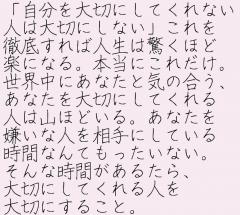 「自分を大切にしてくれない
人は大切にしない」これを
徹底すれば人生は驚くほど
楽になる。本当にこれだけ。
世界中にあなたと気の合う、
あなたを大切にしてくれる
人は山ほどいる。あなたを
嫌いな人を相手にしている
時間なんてもったいない。
そんな時間があるたら、
大切にしてくれる人を
大切にすること。